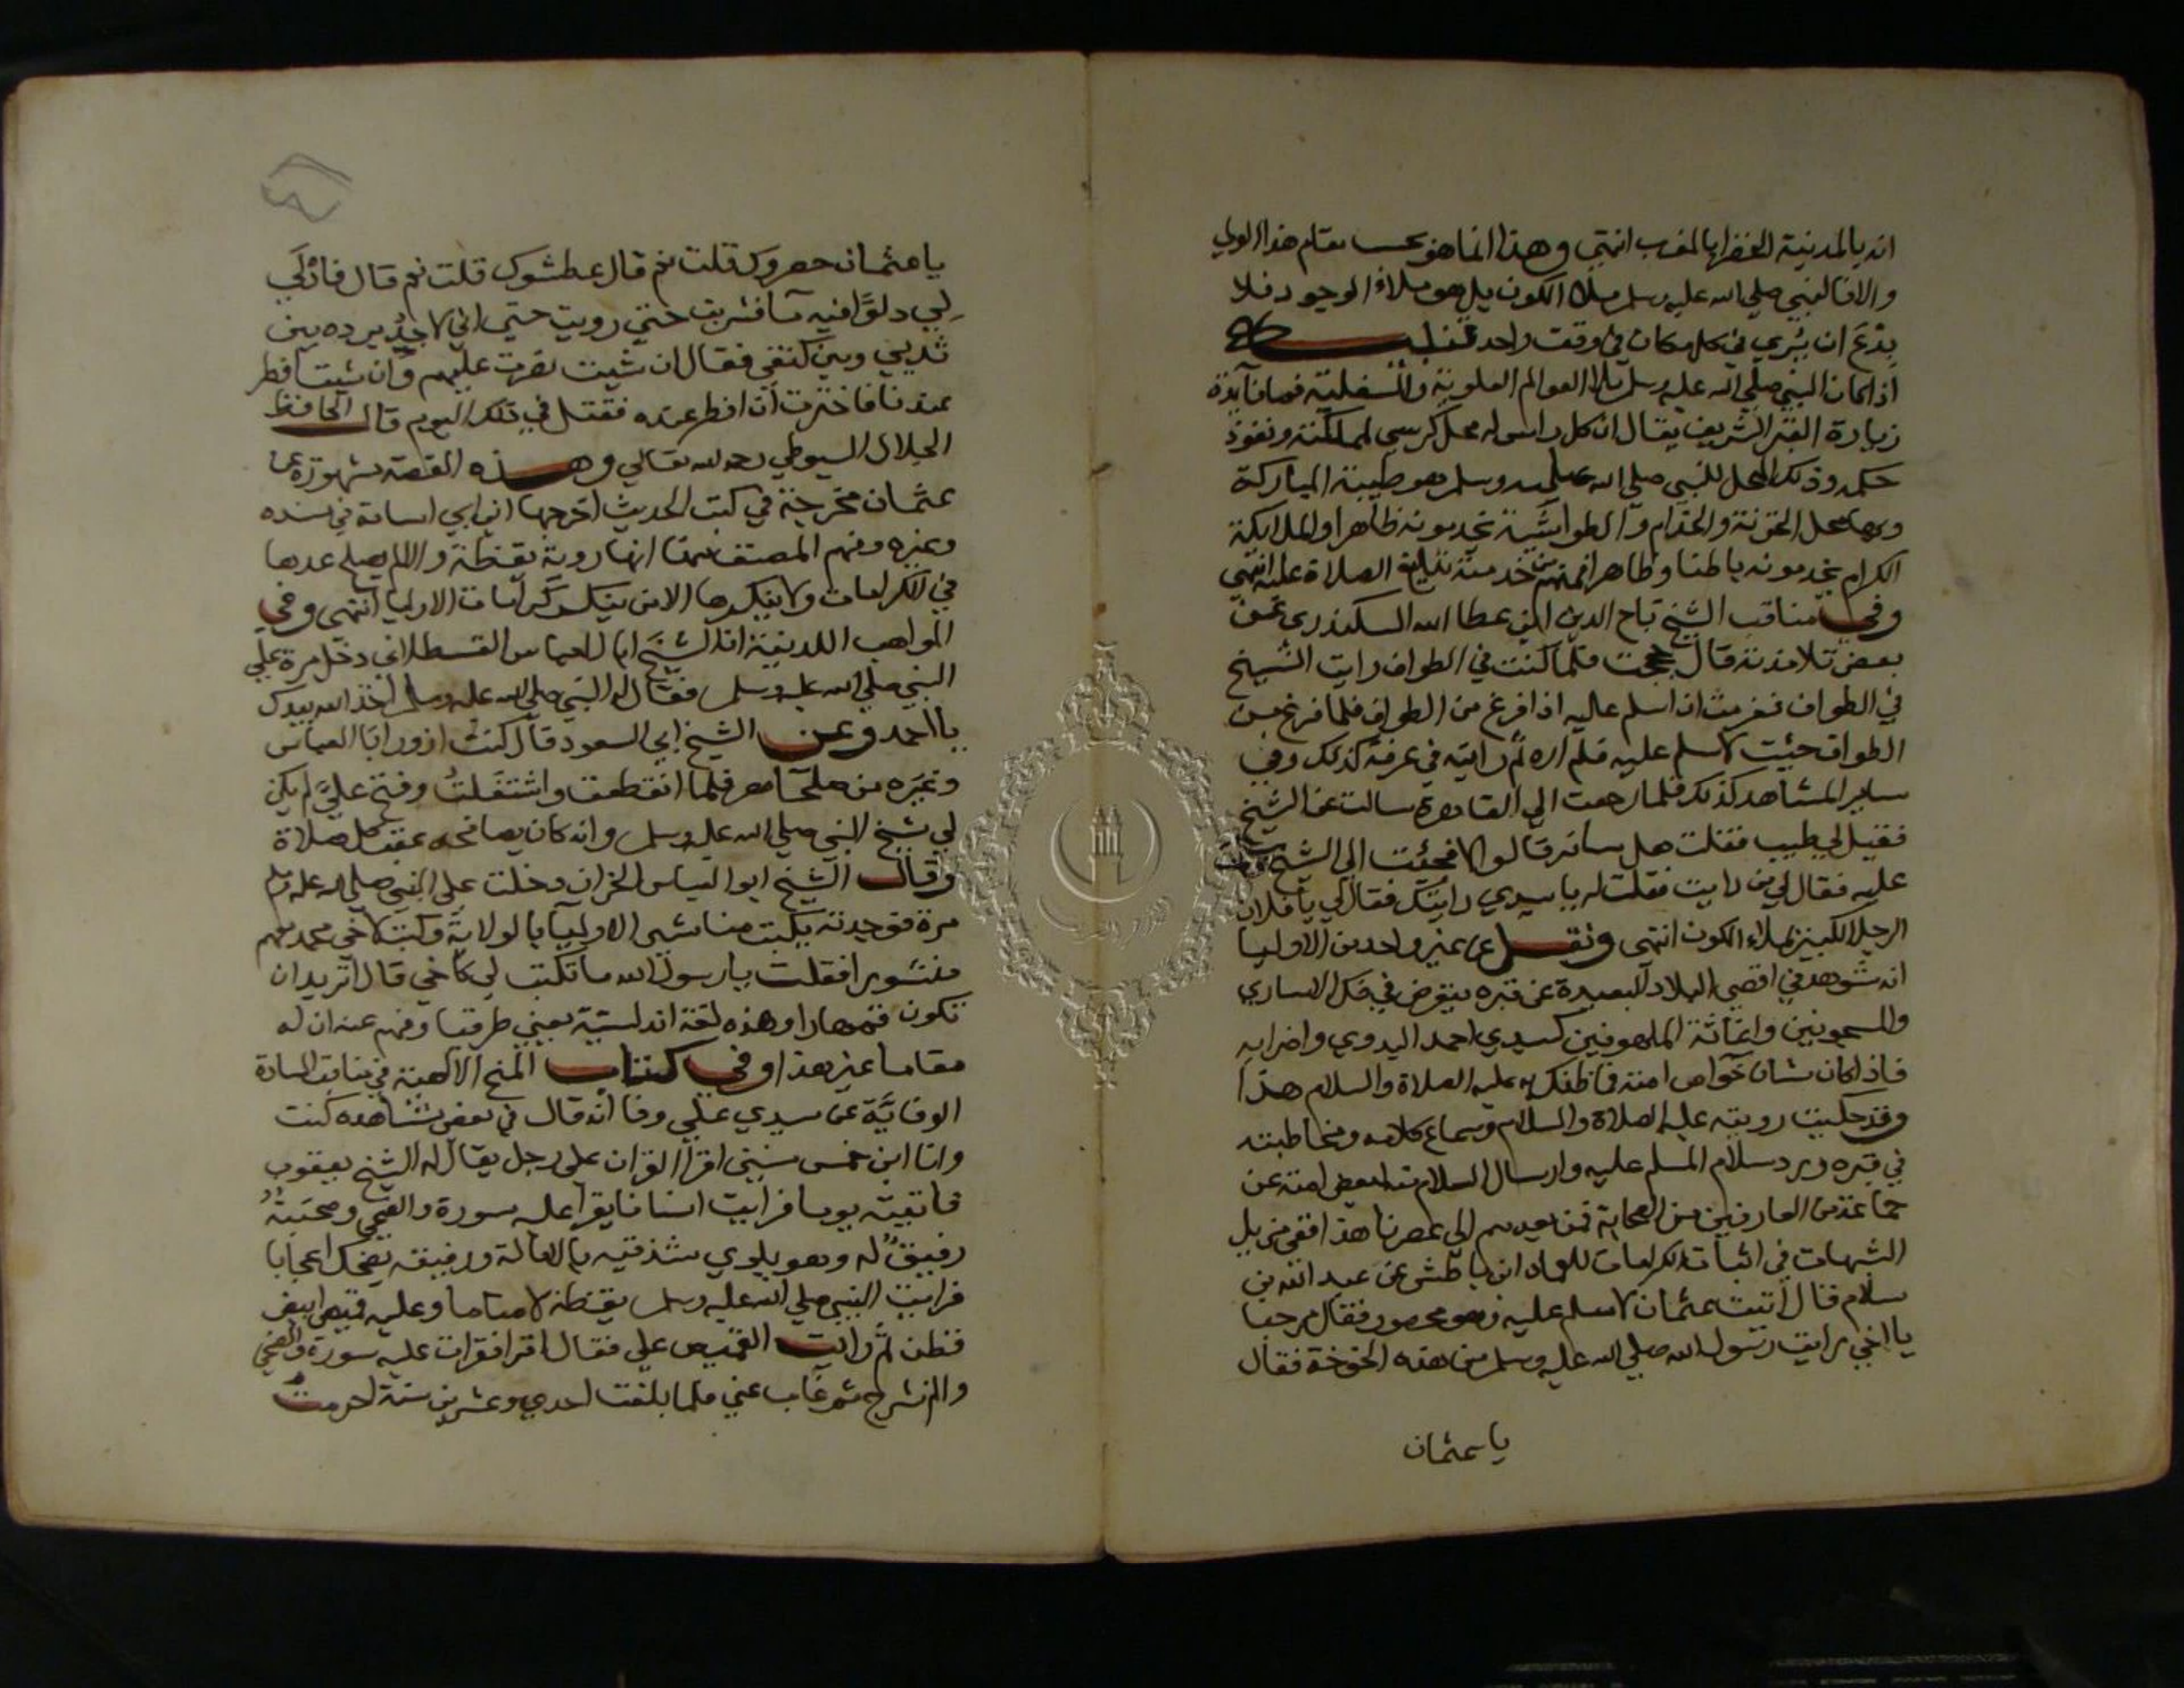 انه بالمدينة الخضرا بالمغرب انتهى وهذا انما هو بحسب مقام هذا الولي
والا فالنبي صلى الله عليه وسلم ملأ الكون بل هو ملأ الوجود فلا
بدع ان يري في كل مكان في وقت واحد تنبيه
اذا كان النبي صلى الله عليه وسلم ملا العوالم العلوية والسفلية فما فايدة
زيارة القبر الشريف يقال ان كل راس له محل كرسي لمملكته ونفوذ
حكمه وذلك المحل للنبي صلى الله عليه وسلم هو طيبة المباركة
وبها محل الخزنة والخدام والطواشية يخدمونه ظاهرا والملايكة
الكرام يخدمونه باطنا وظاهرا فمنهم من خدمته تبليغ الصلاة عليه انتهى
وفي مناقب الشيخ تاج الدين ابن عطا الله السكندري عن
بعض تلامذته قال حججت فلما كنت في الطواف رايت الشيخ
في الطواف فعزمت ان اسلم عليه اذا فرغ من الطواف فلما فرغ من
الطواف جئت لاسلم عليه فلم اره ثم رايته في عرفة كذلك وفي
ساير المشاهد كذلك فلما رجعت الي القاهرة سالت عن الشيخ
فقيل لي طيب فقلت هل سافر قالوا لا فجئت الي الشيخ
عليه فقال لي من رايت فقلت له يا سيدي رايتك فقال لي يا فلان
الرجل الكبير يملاء الكون انتهى ونقل عن غير واحد من الاوليا
انه شوهد في اقصى البلاد البعيدة عن قبره يتعرض في فك الاساري
والمسجونين واغاثة الملهوفين كسيدي احمد البدوي واضرابه
فاذا كان شان خواص امته فما ظنك به عليه الصلاة والسلام هذا
وقد حكيت رويته عليه الصلاة والسلام وسماع كلامه ومخاطبته
في قبره ورد سلام المسلم عليه وارسال السلام منه لبعض امته عن
جماعة من العارفين من الصحابة فمن بعدهم الي عصرنا هذا ففي مزيل
الشبهات في اثبات الكرامات للعماد ابن باطش عن عبد الله بن
سلام قال اتيت عثمان لاسلم عليه وهو محصور فقال مرحبا
يا اخي رايت رسول الله صلى الله عليه وسلم من هذه الخوخة فقال
يا عثمان
يا عثمان حصروك قلت نعم قال عطشوك قلت نعم قال فادلي
لي دلوا فيه ما فشربت حتى رويت حتى اني لاجد برده بين
ثديي وبين كتفي فقال ان شيت نصرت عليهم وان شيت افطر
عندنا فاخترت ان افطر عنده فقتل في ذلك اليوم قال الحافظ
الجلال السيوطي رحمه الله تعالي وهذه القصة مشهورة عن
عثمان مخرجة في كتب الحديث اخرجها ابن ابي اسامة في مسنده
وغيره وفهم المصنف منها انها روية يقظة والا لم يصلح عدها
في الكرامات ولا ينكرها الا من ينكر كرامات الاوليا انتهى وفي
المواهب اللدنية ان الشيخ ابا العباس القسطلاني دخل مرة علي
النبي صلى الله عليه وسلم فقال له النبي صلى الله عليه وسلم اخذ الله بيدك
يا احمد وعن الشيخ ابي السعود قال كنت ازور ابا العباس
وغيره من صلحا مصر فلما انقطعت واشتغلت وفتح علي لم يكن
لي شيخ الا النبي صلى الله عليه وسلم وانه كان يصافحه عقب كل صلاة
وقال الشيخ ابو العباس الحران دخلت علي النبي صلى الله عليه وسلم
مرة فوجدته يكتب مناشير الاوليا بالولاية وكتب لاخي محمد منهم
منشورا فقلت يا رسول الله ما تكتب لي كاخي قال اتريد ان
تكون قمهارا وهذه لغة اندلسية يعني طرقيا وفهم عنه ان له
مقاما غير هذا وفي كتاب المنح الالهية في مناقب السادة
الوفائية عن سيدي علي وفا انه قال في بعض مشاهده كنت
وانا ابن خمس سنين اقرا القران على رجل يقال له الشيخ يعقوب
فاتيته يوما فرايت انسانا يقرا عليه سورة والضحى وصحبته
رفيق له وهو يلوي شدقيه بالامالة ورفيقه يضحك اعجابا
فرايت النبي صلي الله عليه وسلم يقظة لا مناما وعليه قميص ابيض
قطن ثم رايت القميص علي فقال اقرا فقرات عليه سورة والضحى
والم نشرح ثم غاب عني فلما بلغت احدي وعشرين سنة احرمت